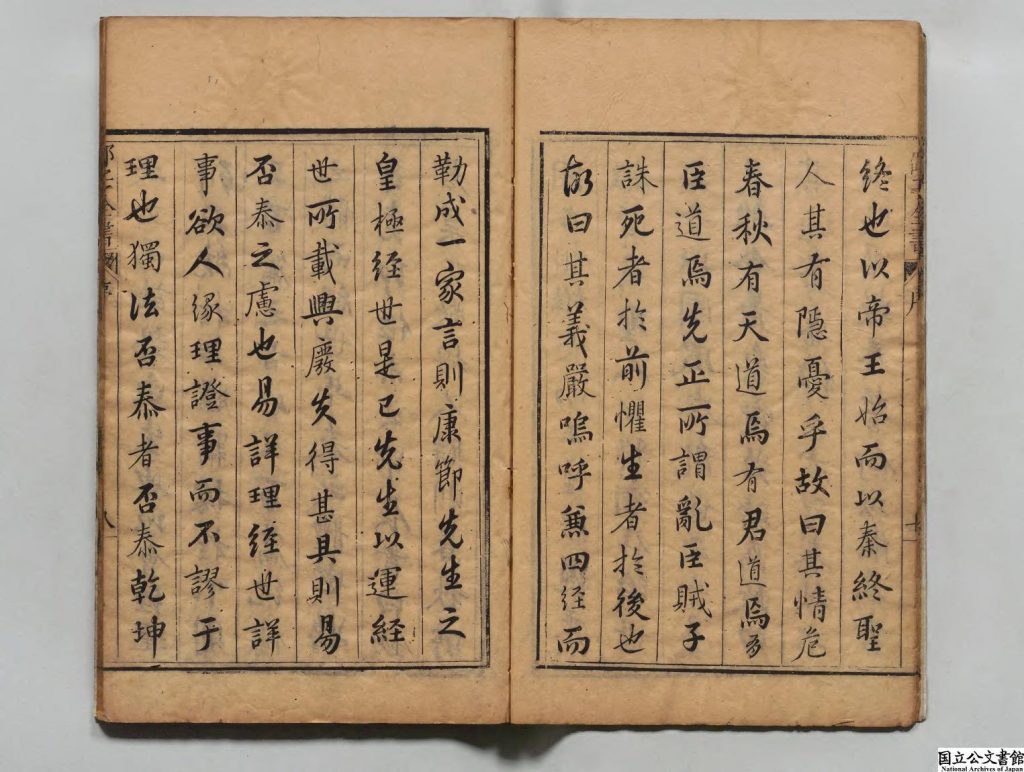 終也以帝王始而以秦終聖
人其有隱憂乎故曰其情危
春秋有天道焉有君道焉有
臣道焉先正所謂亂臣賊子
誅死者於前懼生者於後也
故曰其義嚴嗚呼兼四經而
勒成一家言則康節先生之
皇極經世是已先生以運經
世所載興廢失得甚具則易
否泰之慮也易詳理經世詳
事欲人緣理證事而不謬于
理也獨法否泰者否泰乾坤
邵子全書
序
八
国立公文書館
National Archives of Japan